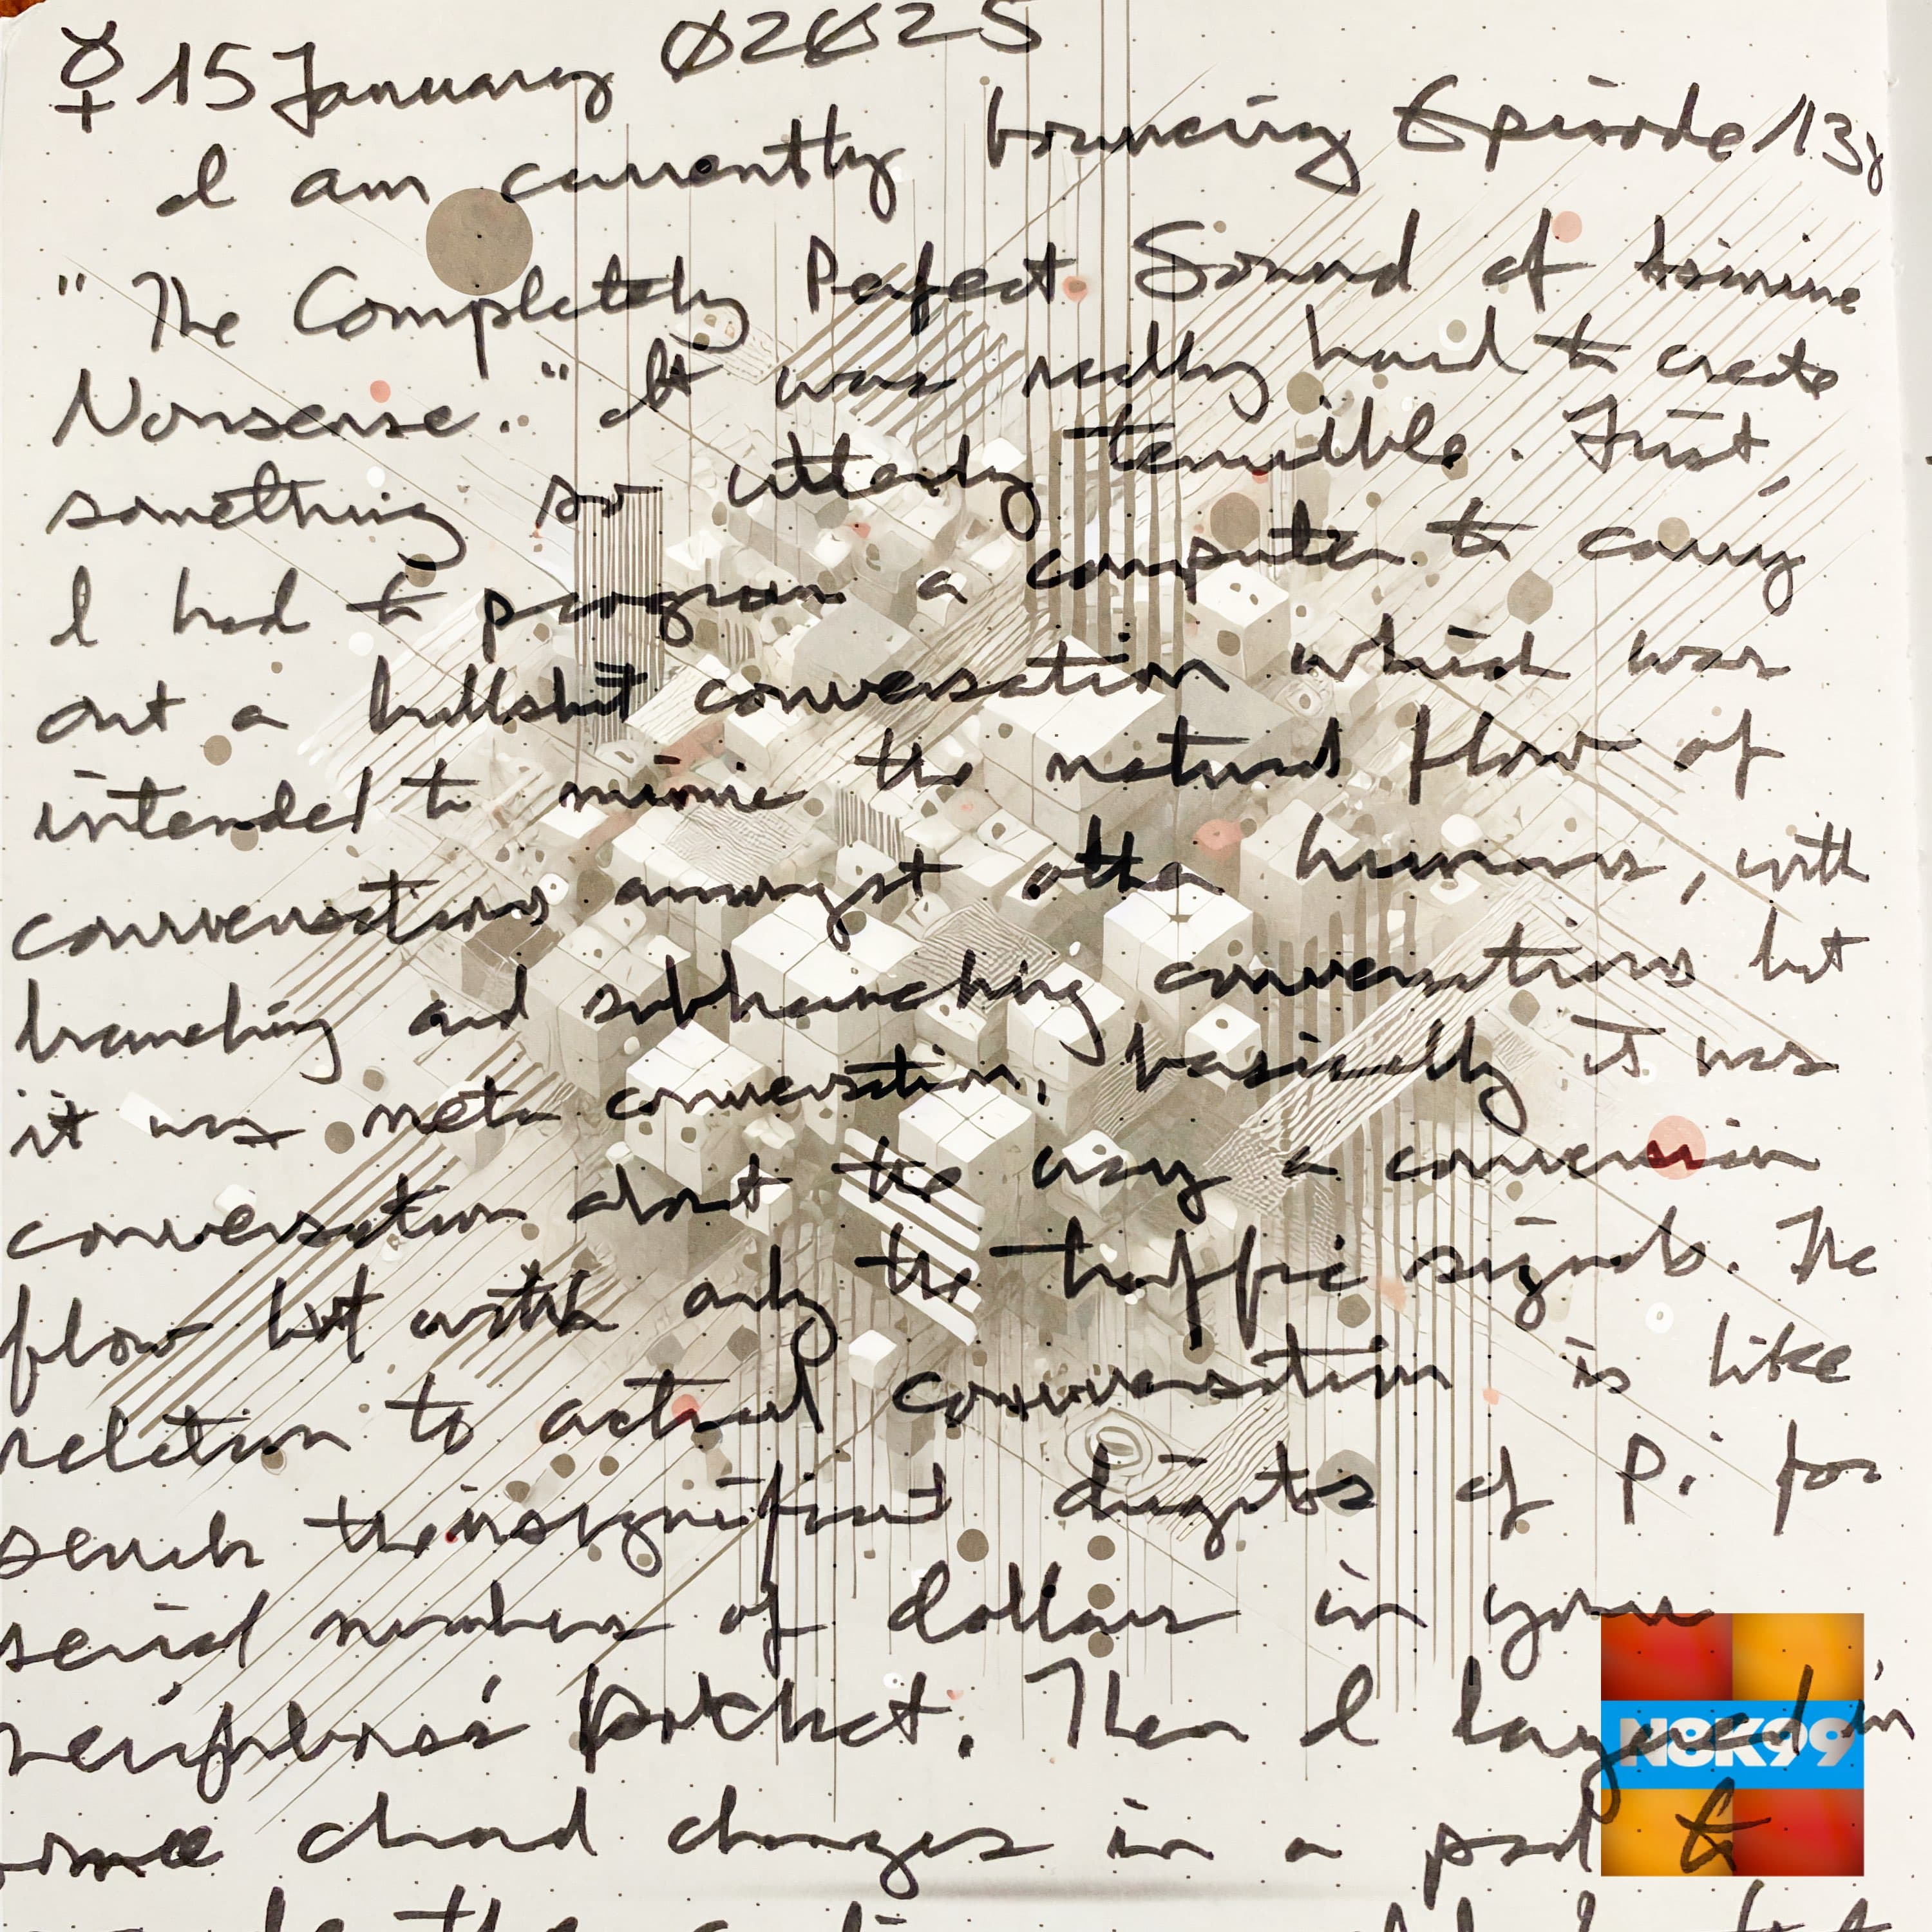 ☿ 15 January 02025
I am currently bouncing Episode 138
"The Completely Perfect Sound of Asinine
Nonsense." It was really hard to create
something so utterly terrible. First,
I had to program a computer to carry
out a bullshit conversation which was
intended to mimic the natural flow of
conversations amongst other humans, with
branching and subbranching conversations but
it was meta conversation, basically it was
conversation about the way a conversation
flow but with only the traffic signals. The
relation to actual conversation is like
the insignificant digits of Pi for
serial numbers of dollars in your
neighbors' pocket. Then I layered in
some chord changes in a pad to
N8K99